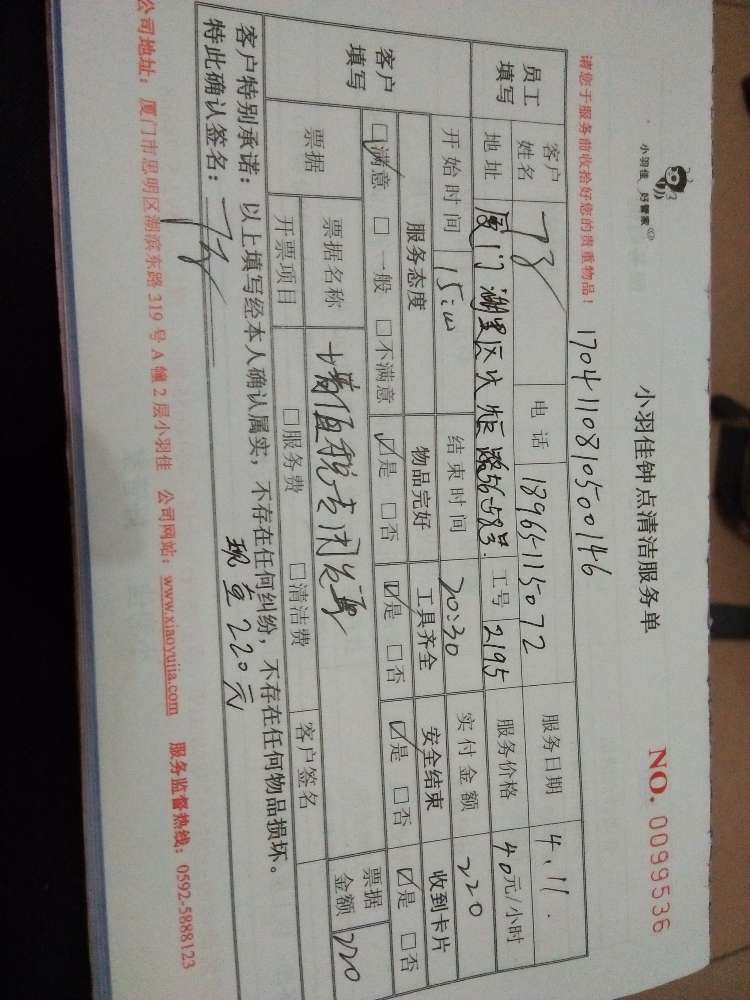 小羽佳 好管家
小羽佳钟点清洁服务单
NO. 0099536
请您于服务前收拾好您的贵重物品！
1704110810500146
员工填写
客户姓名
电话 18965115072
服务日期 4.11.
地址 厦门湖里区火炬路56-58号.
工号 2195
服务价格 40元/小时
开始时间 15:00
结束时间 20:30
实付金额 220
客户填写
服务态度 物品完好 工具齐全 安全结束 收到卡片
☑满意 □一般 □不满意 ☑是 □否 ☑是 □否 ☑是 □否 ☑是 □否
票据
票据名称 增值税专用发票
票据金额 220
开票项目 □服务费 □清洁费 客户签名
客户特别承诺：以上填写经本人确认属实，不存在任何纠纷，不存在任何物品损坏。
特此确认签名：
现金220元
公司地址：厦门市思明区湖滨东路319号A幢2层小羽佳 公司网站：www.xiaoyujia.com 服务监督热线：0592-5888123